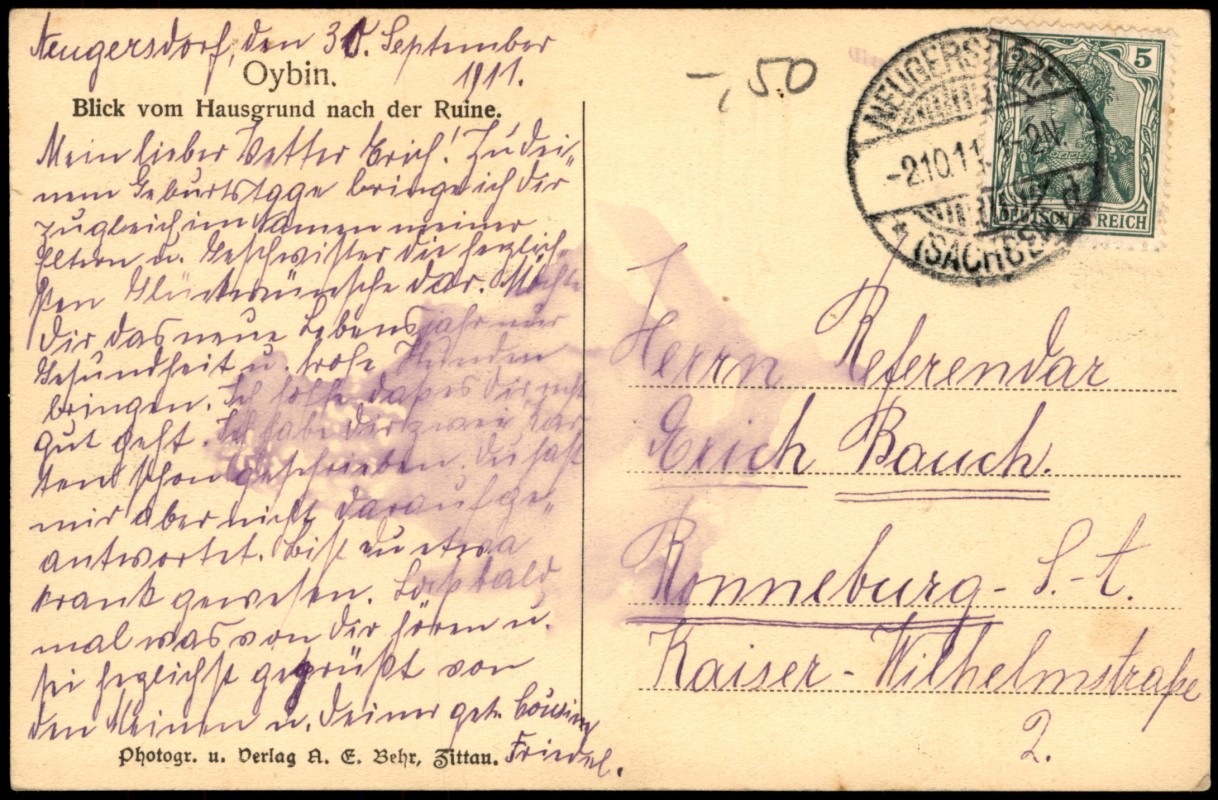 Neugersdorf, den 30. September
1911.
Oybin.
Blick vom Hausgrund nach der Ruine.
Mein lieber Vetter Erich! Zu dei„
nem Geburtstage bringe ich dir
zugleich im Namen meiner
Eltern u. Geschwister die herzlich„
sten Glückwünsche dar. Möchte
dir das neue Lebensjahr nur
Gesundheit u. frohe Stunden
bringen. Ich hoffe daß es dir recht
gut geht. Ich habe dir zwei Kar„
ten schon geschrieben. Du hast
mir aber nicht darauf ge„
antwortet. Bist du etwa
krank gewesen. Laß bald
mal was von dir hören u.
sei herzlichst gegrüßt von
den Meinen u. deiner getr. Cousine
Friedel.
Photogr. u. Verlag A. E. Behr, Zittau.
-,50
NEUGERSDORF
-2.10.11. 1-2N.
(SACHSEN)
5
DEUTSCHES REICH
Herrn Referendar
Erich Bauch.
Ronneburg - S.-A.
Kaiser-Wilhelmstraße
2.